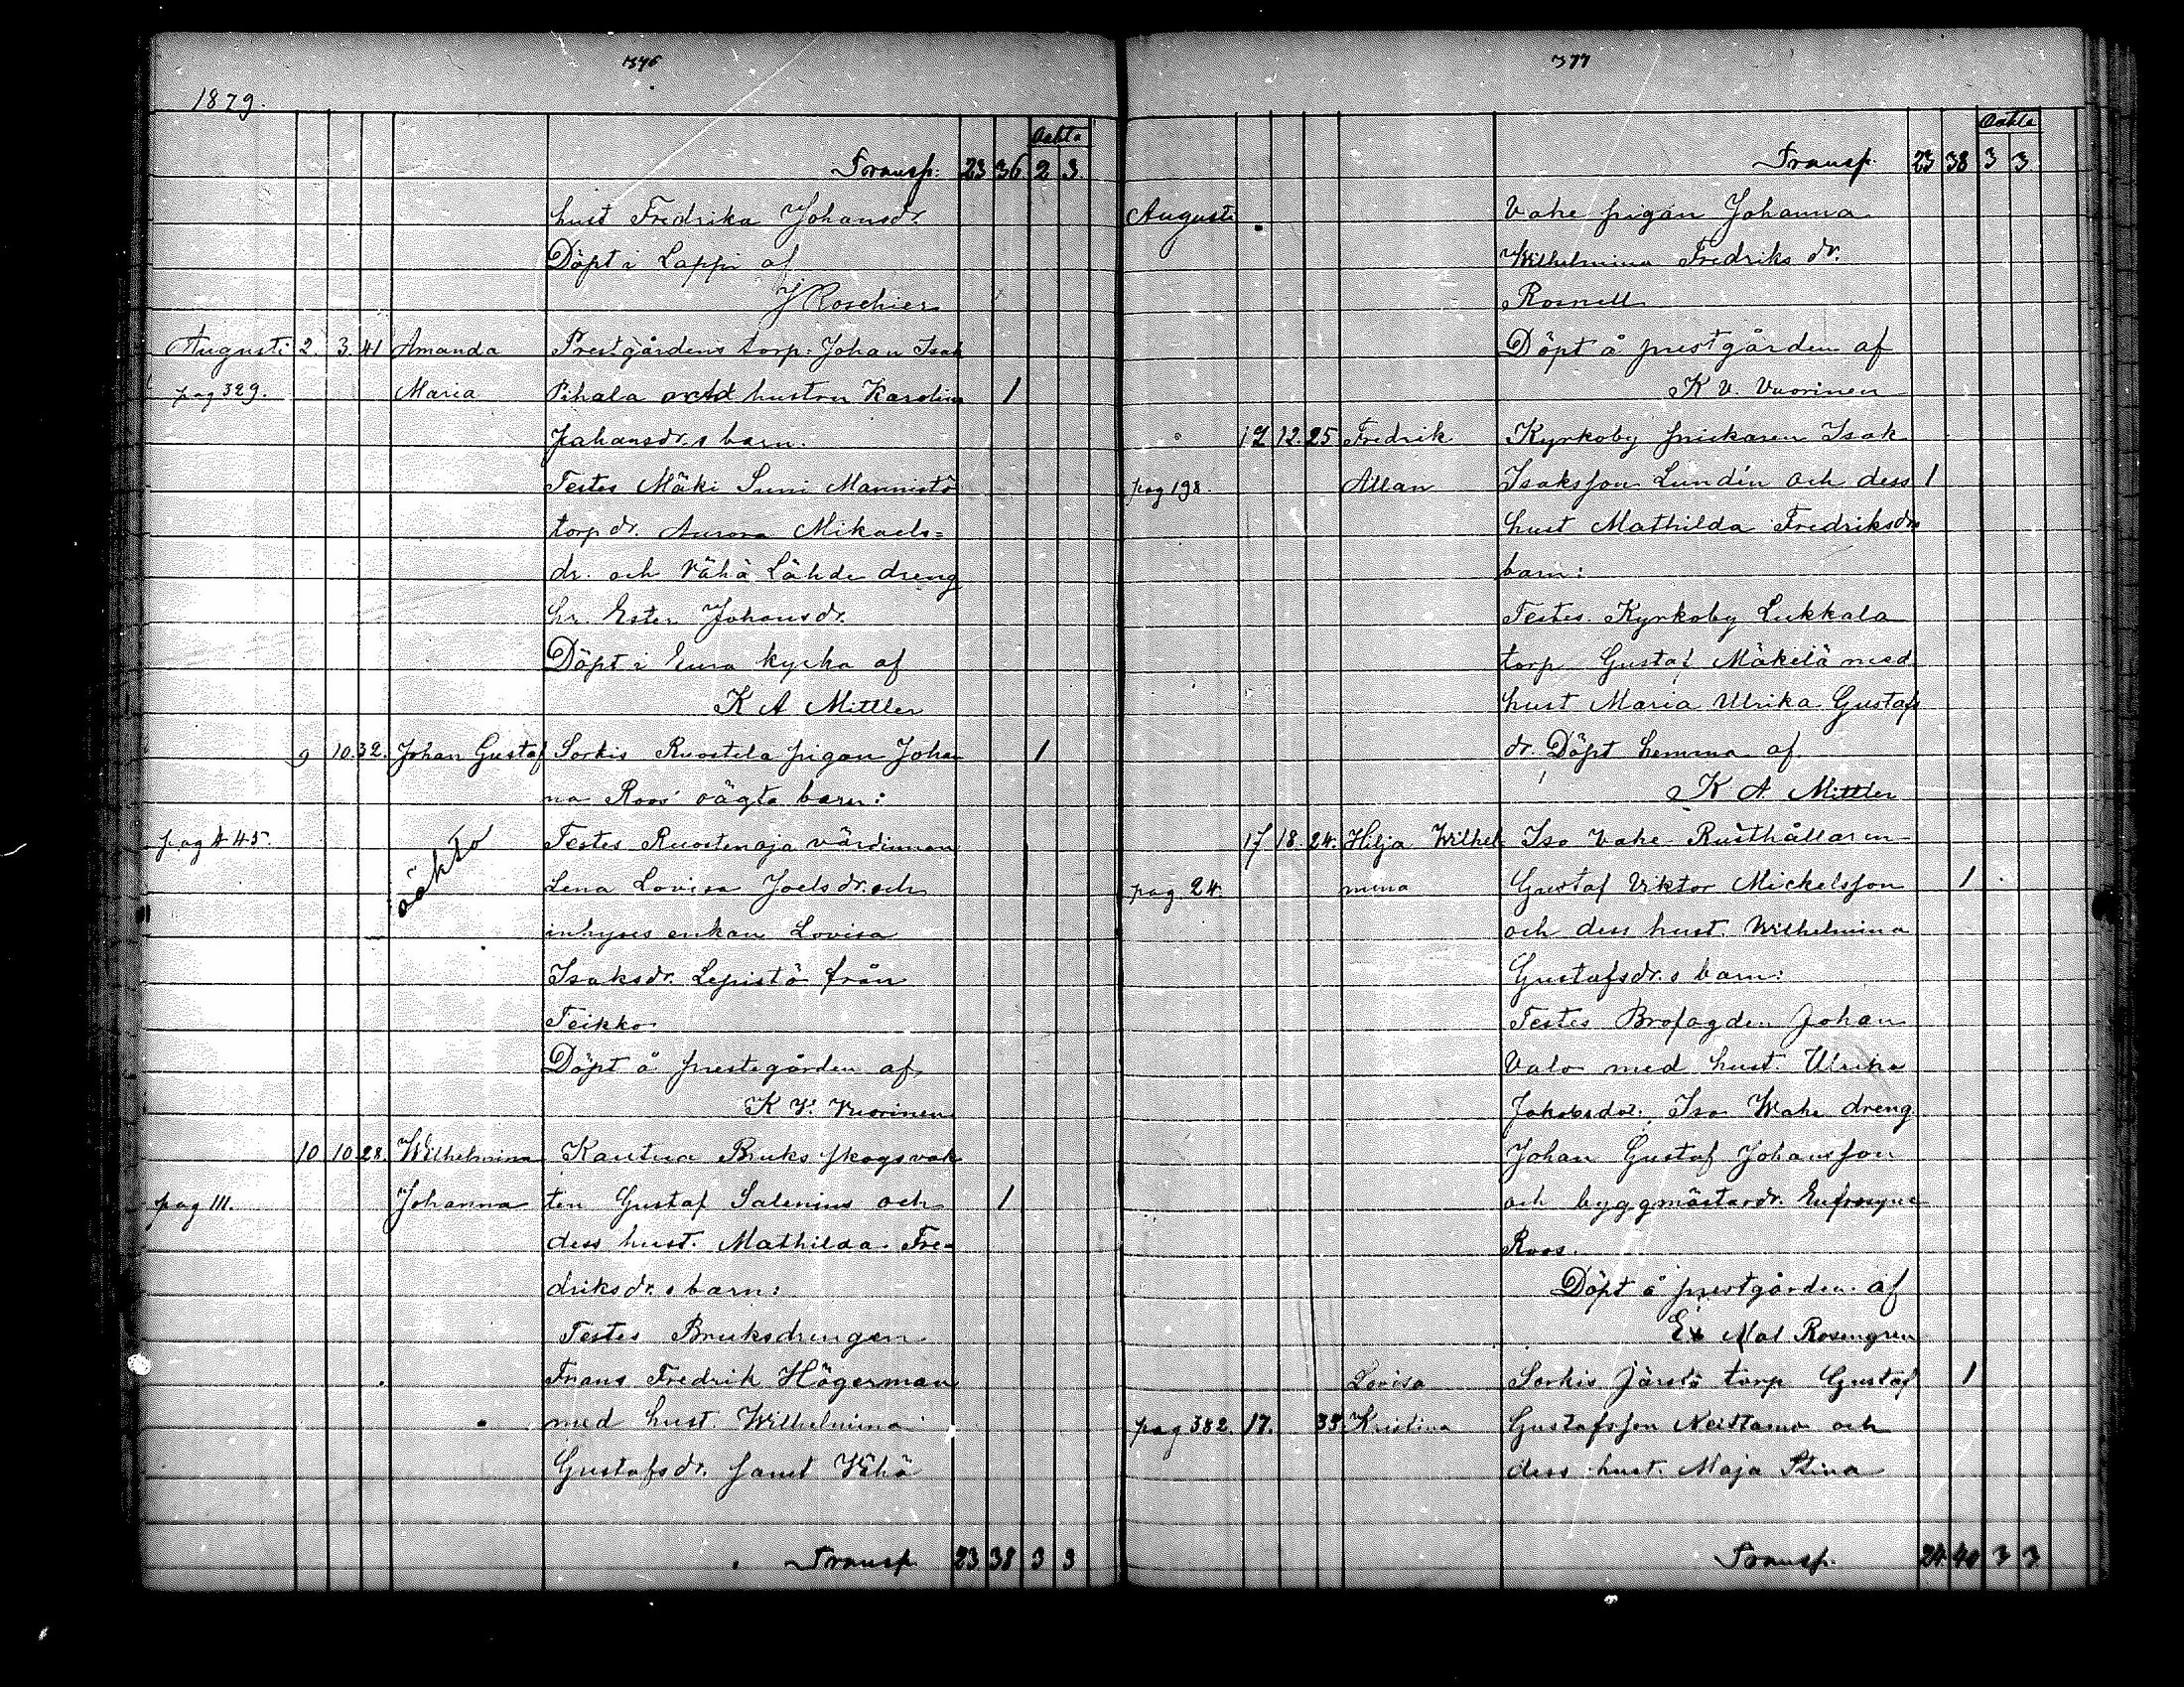 376
1879.
Oäkta
Transp. 23 36 2 3.
hust Fredrika Johansdr.
Döpt i Lappi af
J Roschier
Augusti 2. 3. 41 Amanda Prestgårdens torp. Johan Isak
pag 329. Maria Pihala och hustru Karolina 1
Johansdr.s barn.
Testes Mäki Suni Mannistö
torpdr. Aurora Mikaels=
dr. och Vähä Lähde dreng
hr. Ester Johansdr.
Döpt i Eura kyrka af
K A Mittler
9 10. 32. Johan Gustaf Sorkis Ruostela pigan Johan 1
na Roos' oägta barn:
pag 445. oäkta Testes Ruostenoja värdinnan
Lena Lovisa Joelsdr. och
inhyses enkan Lovisa
Isaksdr. Lepistö från
Teikko
Döpt å prestegården af
K V. Vuorinen
10 10 28. Wilhelmina Kautua Bruks skogsvak
pag 111. Johanna ten Gustaf Salenius och 1
dess hust. Mathilda Fre-
driksdr.s barn:
Testes Bruksdrengen
Frans Fredrik Högerman
med hust. Wilhelmina
Gustafsdr. samt Vähä
Transp 23 38 3 3
377
Oäkta
Transp. 23 38 3 3.
Augusti Vahe pigan Johanna
Wilhelmina Fredriks dr.
Rosnell
Döpt å prestgården af
K V. Vuorinen
12 12. 25 Fredrik Kyrkoby snickaren Isak
pag 198. Allan Isaksson Lundén och dess 1
hust Mathilda Fredriksdrs
barn:
Testes. Kyrkoby Lukkala
torp Gustaf Mäkelä med
hust Maria Ulrika Gustafs
dr. Döpt hemma af
K A. Mittler
17 18. 24. Hilja Wilhel Iso Vahe Rusthållaren
pag. 24. mina Gustaf Viktor Mickelsson 1
och dess hust. Wilhelmina
Gustafsdr.s barn:
Testes Brofogden Johan
Valo med hust. Ulrika
Jakobsdr. Iso Wahe dreng
Johan Gustaf Johansson
och byggmästardr. Eufrosyne
Roos.
Döpt å prestgården af
Ex Mat Rosengren
Lovisa Sorkis Järstö torp Gustaf 1
pag 382. 17. 33 Kristina Gustafsson Neittamo och
dess hust. Maja Stina
Transp. 24 40 3 3